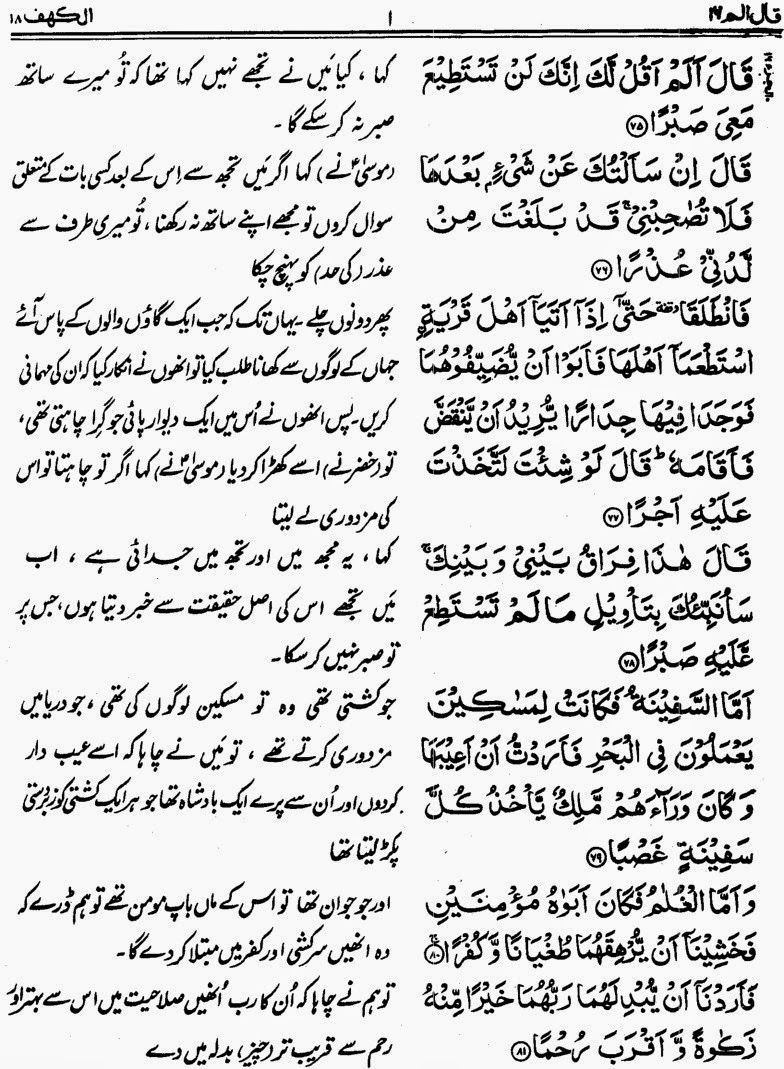 قال الم ۱۶
۱
الکہف ۱۸
قَالَ اَلَمْ اَقُلْ لَّكَ اِنَّكَ لَنْ تَسْتَطِيْعَ
مَعِيَ صَبْرًا ﴿۷۵﴾
قَالَ اِنْ سَاَلْتُكَ عَنْ شَيْءٍۭ بَعْدَهَا
فَلَا تُصٰحِبْنِيْ ۚ قَدْ بَلَغْتَ مِنْ
لَّدُنِّيْ عُذْرًا ﴿۷۶﴾
فَانْطَلَقَا ۥ حَتّٰۤى اِذَاۤ اَتَيَاۤ اَهْلَ قَرْيَةِ
اِۨسْتَطْعَمَاۤ اَهْلَهَا فَاَبَوْا اَنْ يُّضَيِّفُوْهُمَا
فَوَجَدَا فِيْهَا جِدَارًا يُّرِيْدُ اَنْ يَّنْقَضَّ
فَاَقَامَهٗ ؕ قَالَ لَوْ شِئْتَ لَتَّخَذْتَ
عَلَيْهِ اَجْرًا ﴿۷۷﴾
قَالَ هٰذَا فِرَاقُ بَيْنِيْ وَ بَيْنِكَ ۚ
سَاُنَبِّئُكَ بِتَاْوِيْلِ مَا لَمْ تَسْتَطِعْ
عَّلَيْهِ صَبْرًا ﴿۷۸﴾
اَمَّا السَّفِيْنَةُ فَكَانَتْ لِمَسٰكِيْنَ
يَعْمَلُوْنَ فِي الْبَحْرِ فَاَرَدْتُّ اَنْ اَعِيْبَهَا
وَ كَانَ وَرَآءَهُمْ مَّلِكٌ يَّاْخُذُ كُلَّ
سَفِيْنَةٍ غَصْبًا ﴿۷۹﴾
وَ اَمَّا الْغُلٰمُ فَكَانَ اَبَوٰهُ مُؤْمِنَيْنِ
فَخَشِيْنَاۤ اَنْ يُّرْهِقَهُمَا طُغْيَانًا وَّ كُفْرًا ﴿۸۰﴾
فَاَرَدْنَاۤ اَنْ يُّبْدِلَهُمَا رَبُّهُمَا خَيْرًا مِّنْهُ
زَكٰوةً وَّ اَقْرَبَ رُحْمًا ﴿۸۱﴾
کہا ، کیا مَیں نے تجھے نہیں کہا تھا کہ تُو میرے ساتھ
صبر نہ کر سکے گا ۔
(موسیٰؑ نے) کہا اگر مَیں تجھ سے اِس کے بعد کسی بات کے متعلق
سوال کروں تو مجھے اپنے ساتھ نہ رکھنا ، تُو میری طرف سے
عذر (کی حد) کو پہنچ چکا
پھر دونوں چلے ۔ یہاں تک کہ جب ایک گاؤں والوں کے پاس آئے
جہاں کے لوگوں سے کھانا طلب کیا تو انھوں نے انکار کیا کہ ان کی مہمانی
کریں ۔ پس انھوں نے اُس میں ایک دیوار پائی جو گرا چاہتی تھی ،
تو (خضر نے) اسے کھڑا کر دیا (موسیٰؑ نے) کہا اگر تو چاہتا تو اس
کی مزدوری لے لیتا
کہا ، یہ مجھ میں اور تجھ میں جدائی ہے ، اب
مَیں تجھے اس کی اصل حقیقت سے خبر دیتا ہوں ، جس پر
تو صبر نہیں کر سکا ۔
جو کشتی تھی وہ تو مسکین لوگوں کی تھی ، جو دریا میں
مزدوری کرتے تھے ، تو مَیں نے چاہا کہ اسے عیب دار
کردوں اور اُن سے پرے ایک بادشاہ تھا جو ہر ایک کشتی کو زبردستی
پکڑ لیتا تھا
اور جو جوان تھا تو اس کے ماں باپ مومن تھے تو ہم ڈرے کہ
وہ انھیں سرکشی اور کفر میں مبتلا کر دے گا ۔
تو ہم نے چاہا کہ اُن کا رب اُنھیں صلاحیت میں اس سے بہتر اور
رحم سے قریب تر (چیز) بدلہ میں دے